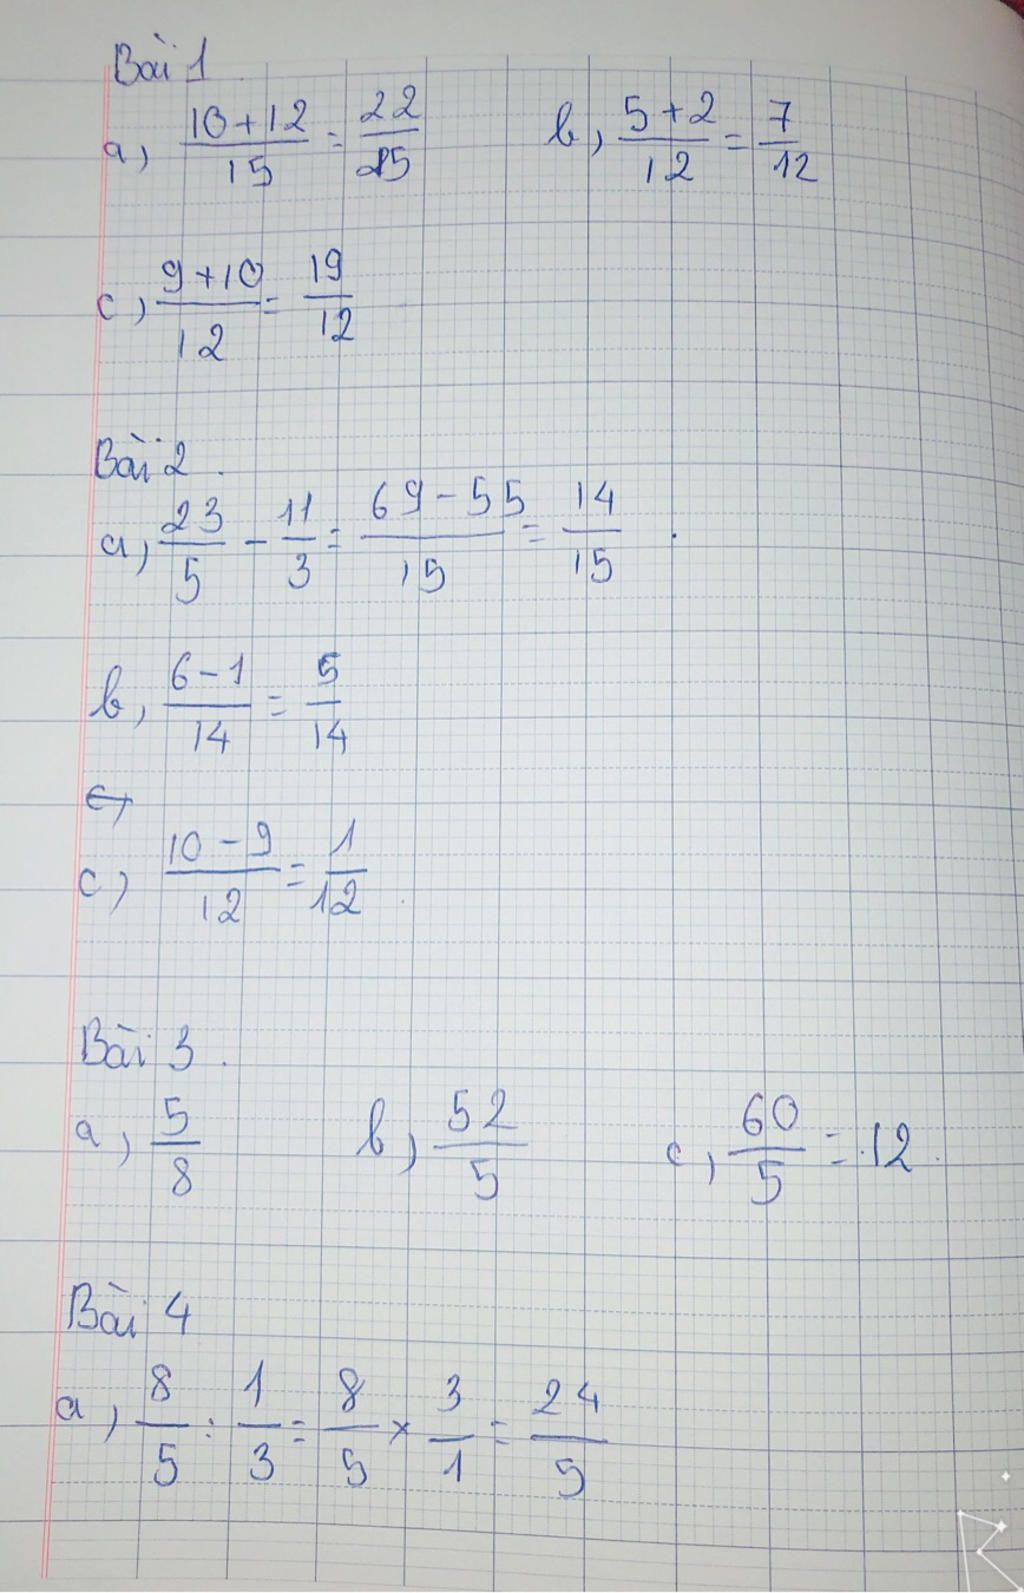 Bài 1
a, 10+12/15 = 22/15 b, 5+2/12 = 7/12
c, 9+10/12 = 19/12
Bài 2.
a, 23/5 - 11/3 = 69-55/15 = 14/15.
b, 6-1/14 = 5/14
c, 10-9/12 = 1/12.
Bài 3.
a, 5/8 b, 52/5 c, 60/5 = 12.
Bài 4
a, 8/5 : 1/3 = 8/5 × 3/1 = 24/5